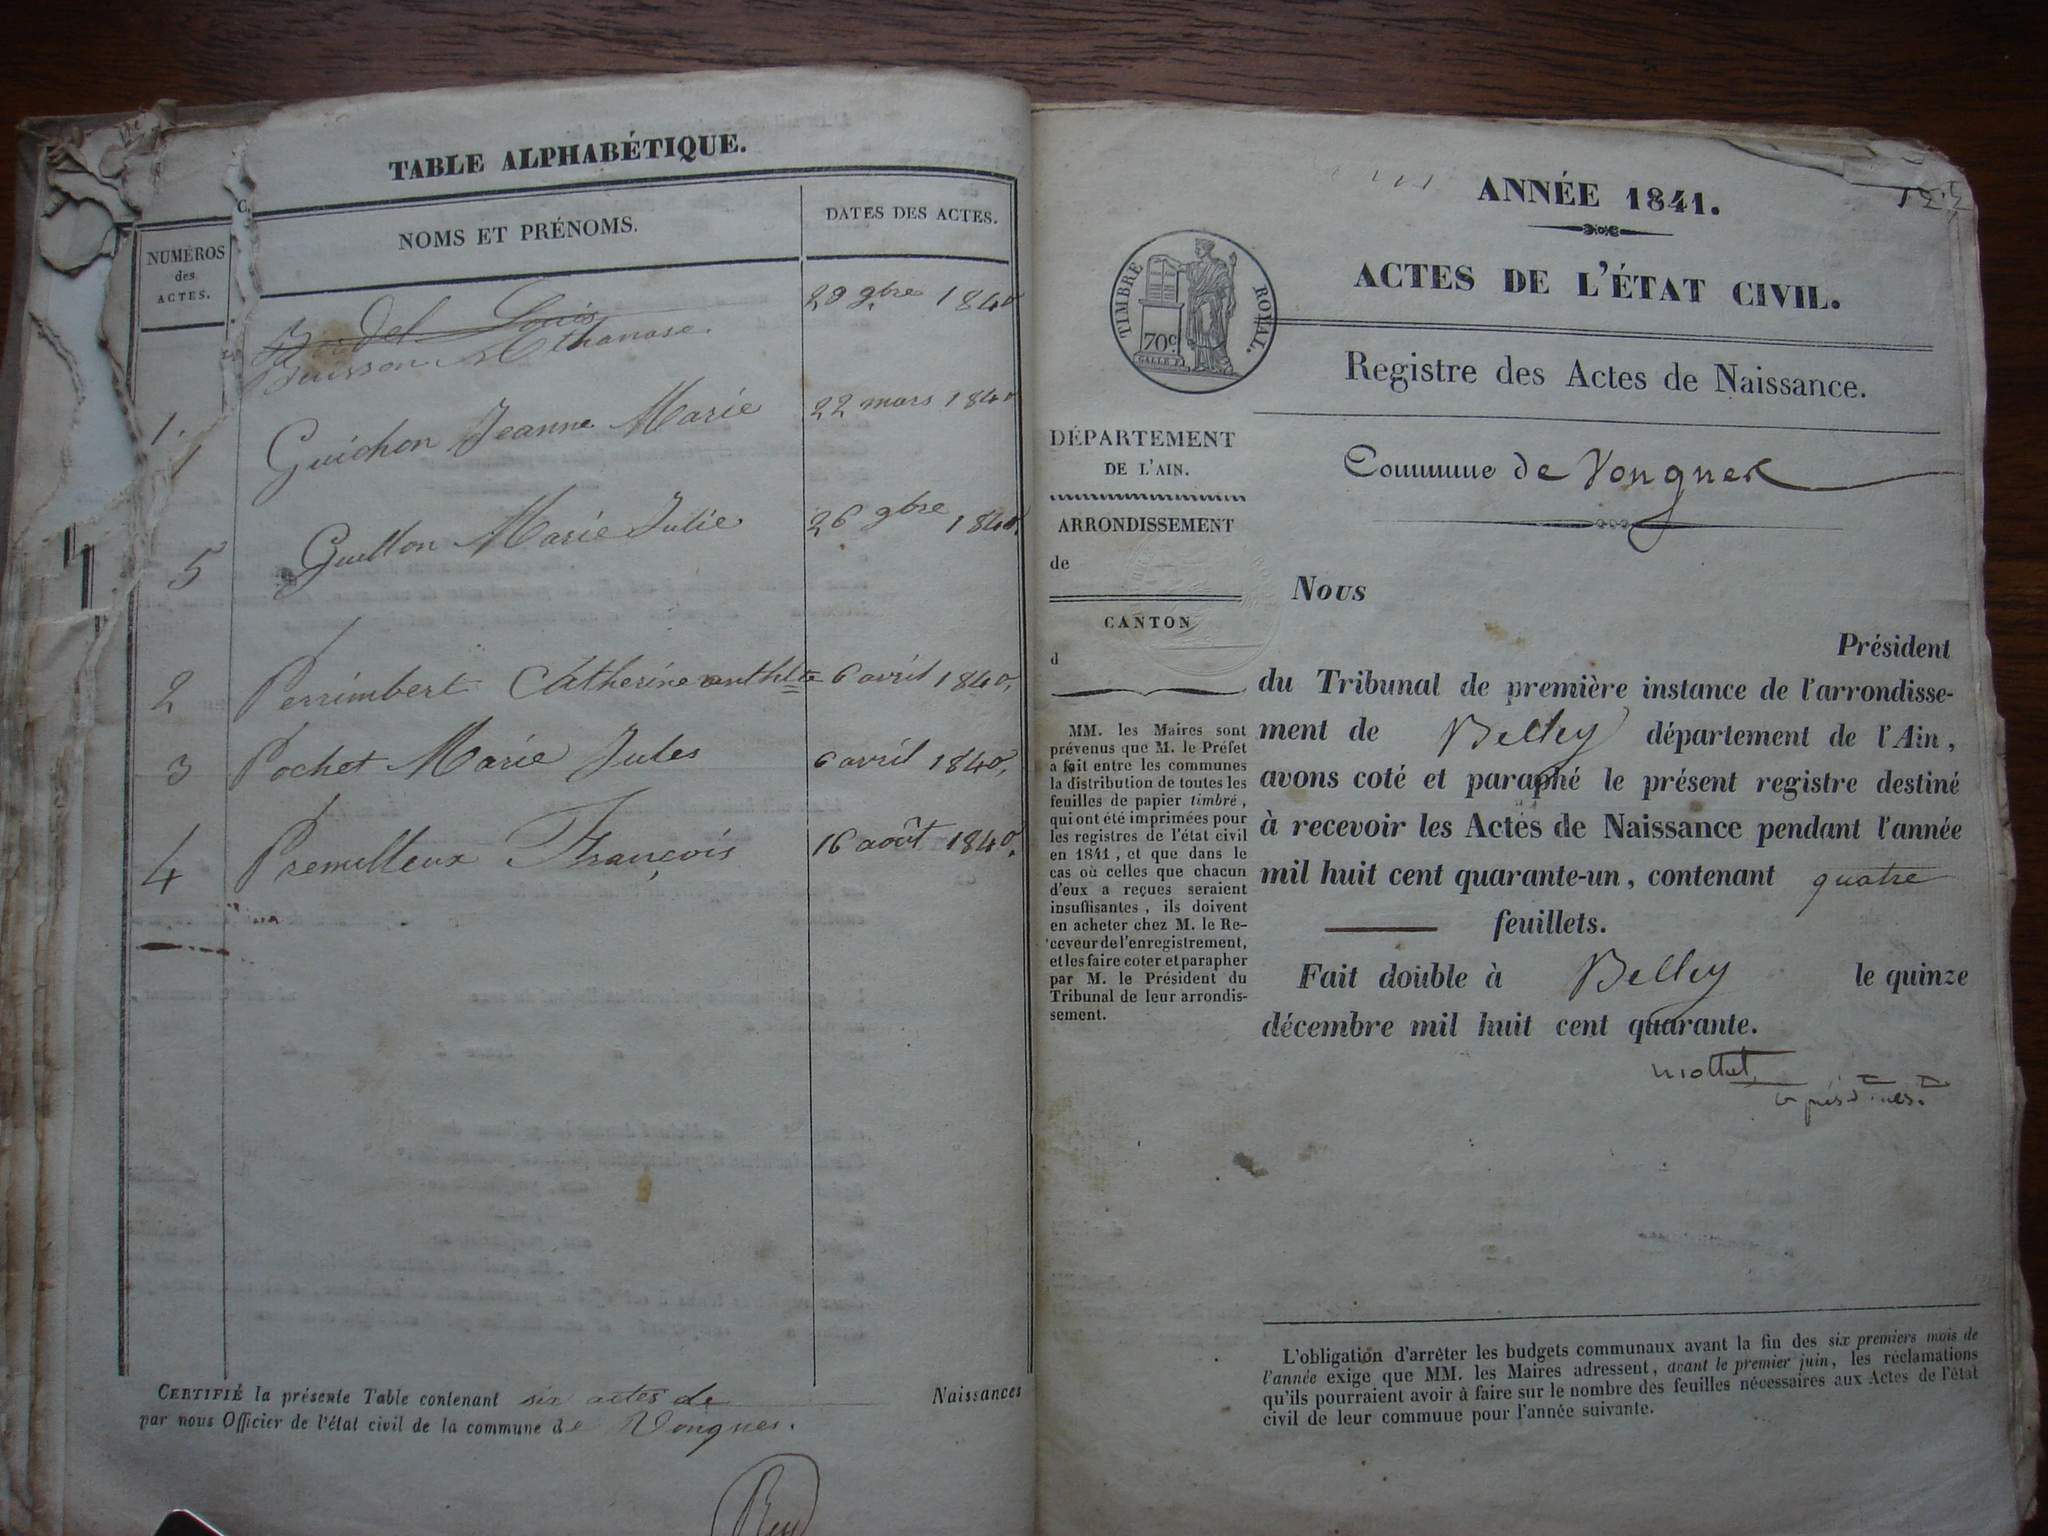 TABLE ALPHABÉTIQUE.
NUMÉROS
des
ACTES.
NOMS ET PRÉNOMS.
DATES DES ACTES.
Louis
Buisson Athanase.
29 9bre 1840
1.
1 Guichon Jeanne Marie 22 mars 1840
5 Guillon Marie Julie 26 9bre 1840.
2 Perrimbert Catherine anthlte 6 avril 1840,
3 Pochet Marie Jules 6 avril 1840,
4 Premilleux François 16 août 1840.
CERTIFIÉ la présente Table contenant six actes de Naissances
par nous Officier de l'état civil de la commune de Vongnes.
ANNÉE 1841.
ACTES DE L'ÉTAT CIVIL.
TIMBRE ROYAL.
70c
Registre des Actes de Naissance.
Commune de Vongnes
DÉPARTEMENT
DE L'AIN.
ARRONDISSEMENT
de
CANTON
d
MM. les Maires sont
prévenus que M. le Préfet
a fait entre les communes
la distribution de toutes les
feuilles de papier timbré,
qui ont été imprimées pour
les registres de l'état civil
en 1841, et que dans le
cas où celles que chacun
d'eux a reçues seraient
insuffisantes, ils doivent
en acheter chez M. le Re-
ceveur de l'enregistrement,
et les faire coter et parapher
par M. le Président du
Tribunal de leur arrondis-
sement.
Nous
Président
du Tribunal de première instance de l'arrondisse-
ment de Belley département de l'Ain,
avons coté et paraphé le présent registre destiné
à recevoir les Actes de Naissance pendant l'année
mil huit cent quarante-un, contenant quatre
feuillets.
Fait double à Belley le quinze
décembre mil huit cent quarante.
L'obligation d'arrêter les budgets communaux avant la fin des six premiers mois de
l'année exige que MM. les Maires adressent, avant le premier juin, les réclamations
qu'ils pourraient avoir à faire sur le nombre des feuilles nécessaires aux Actes de l'état
civil de leur commune pour l'année suivante.